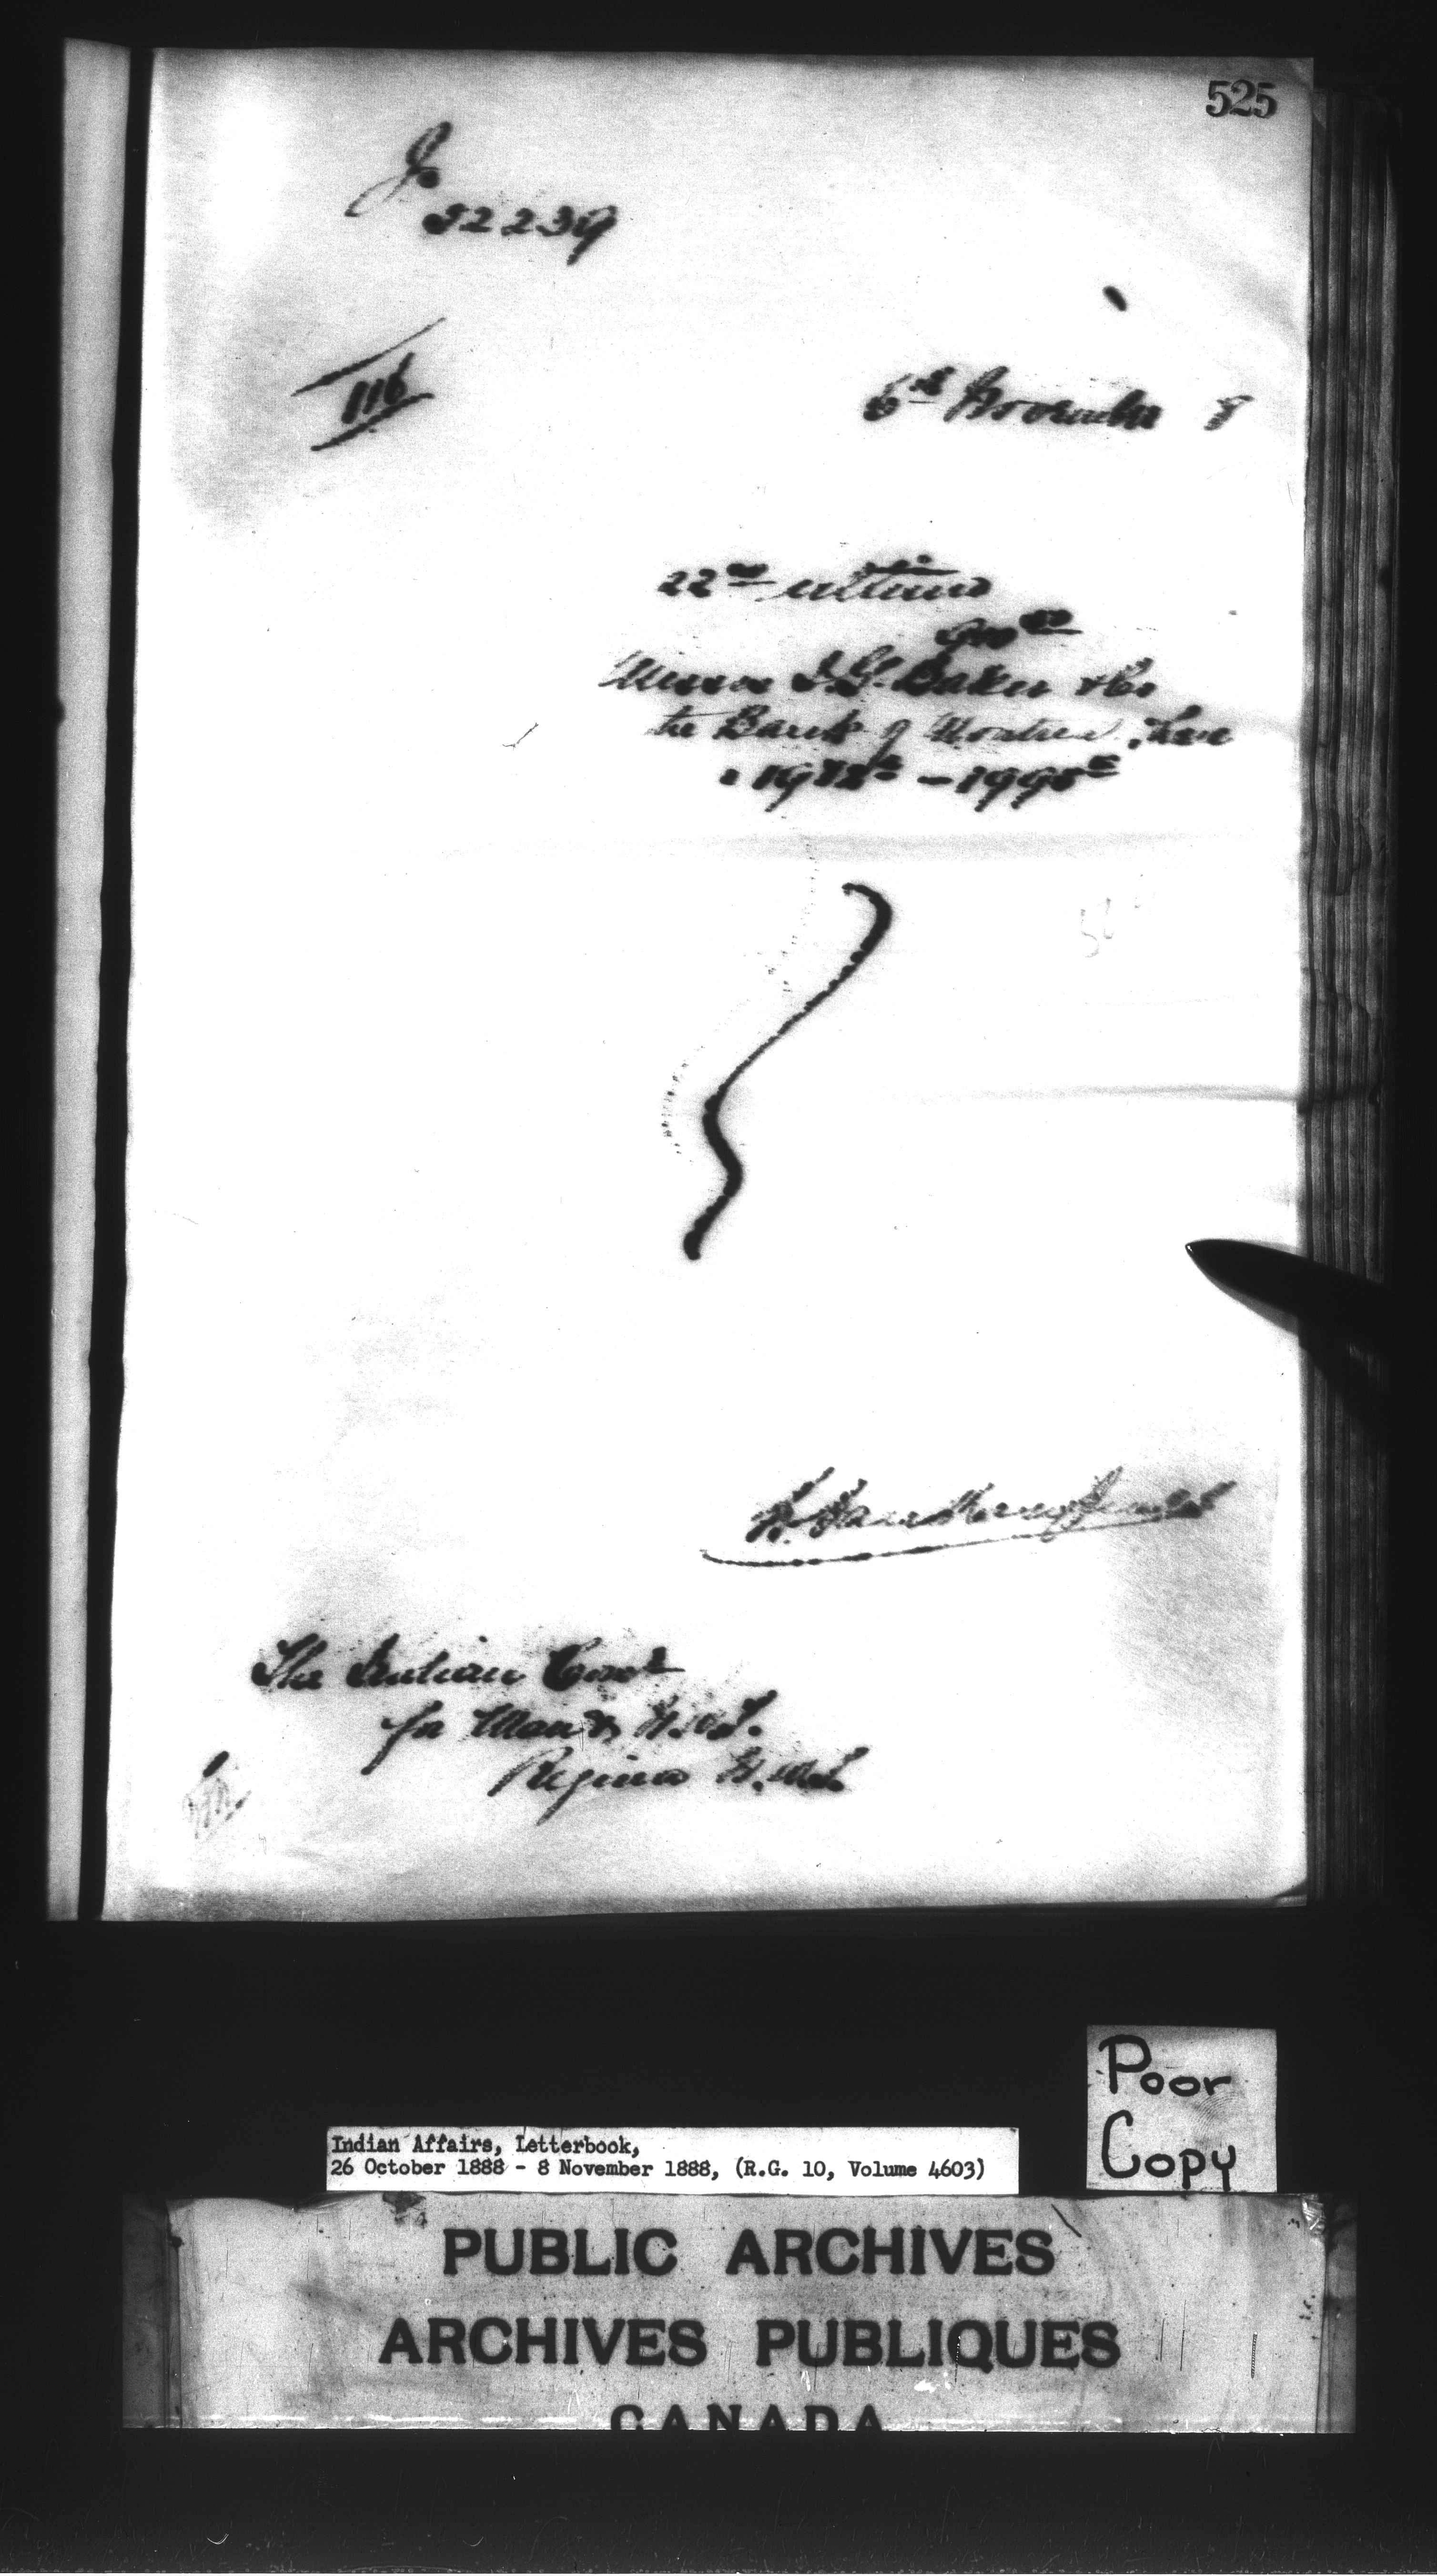 525
Jo
52239
116
6th November 8
22nd ultimo
Messrs I.G. Baker & Co
the Bank of Montreal,
The Indian Comr
for Man & N.W.T.
Regina N.W.T.
Poor
Copy
Indian Affairs, Letterbook,
26 October 1888 - 8 November 1888, (R.G. 10, Volume 4603)
PUBLIC ARCHIVES
ARCHIVES PUBLIQUES
CANADA